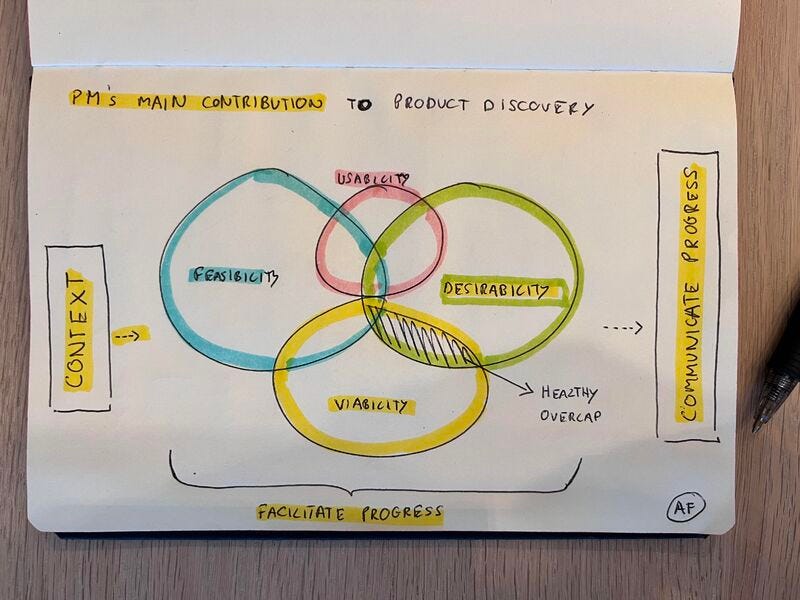 PM's MAIN CONTRIBUTION TO PRODUCT DISCOVERY
USABILITY
FEASIBILITY
DESIRABILITY
CONTEXT
COMMUNICATE PROGRESS
VIABILITY
HEALTHY
OVERLAP
FACILITATE PROGRESS
AF